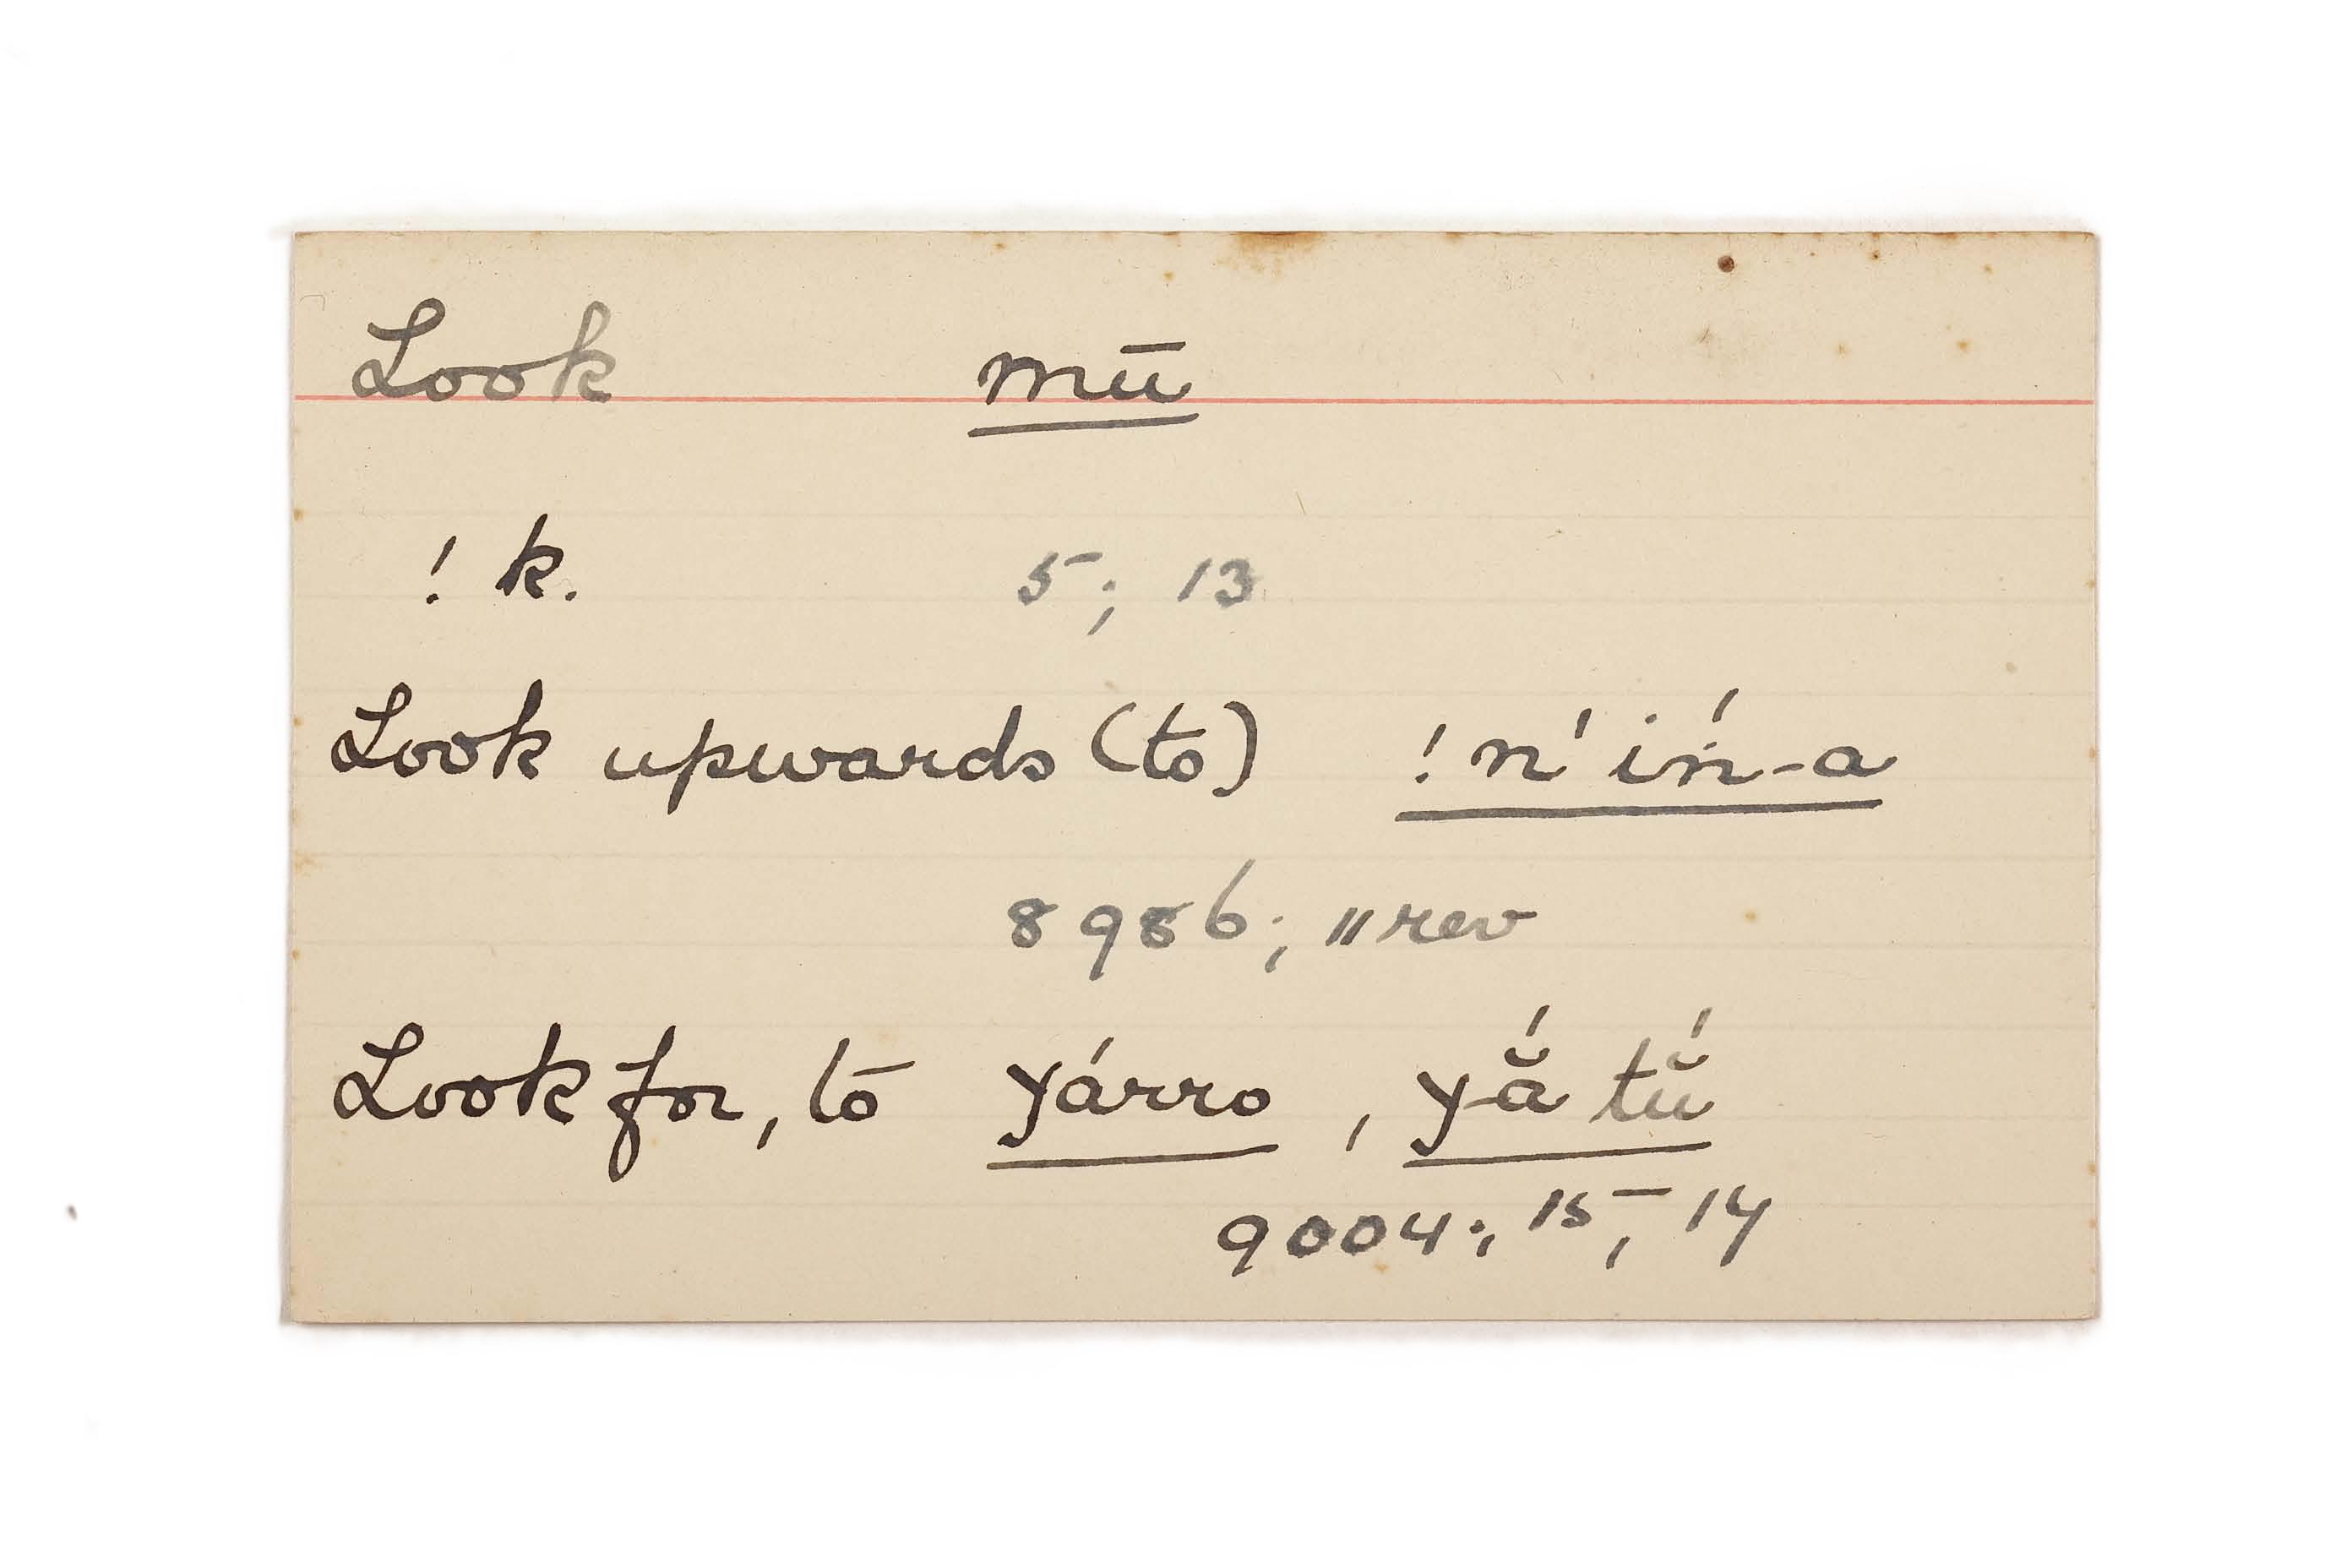 Look mū
! k. 5; 13
Look upwards (to) !n' iń-a
8986; 11 rev
Look for, to yárro, yắ tŭ́
9004; 15, 14